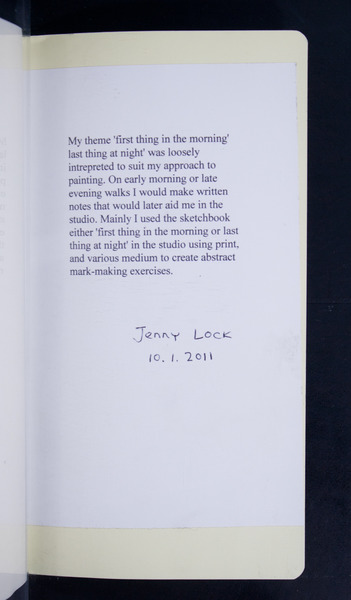 My theme 'first thing in the morning'
last thing at night' was loosely
intrepreted to suit my approach to
painting. On early morning or late
evening walks I would make written
notes that would later aid me in the
studio. Mainly I used the sketchbook
either 'first thing in the morning or last
thing at night' in the studio using print,
and various medium to create abstract
mark-making exercises.
Jenny Lock
10.1.2011